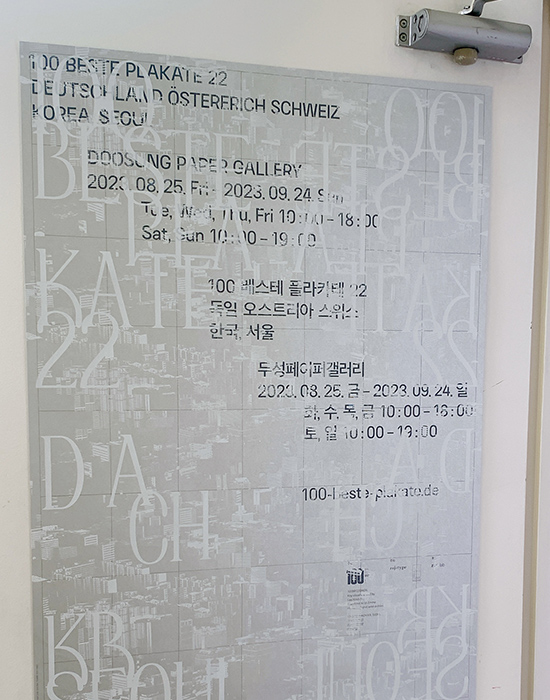 100 BESTE PLAKATE 22
DEUTSCHLAND ÖSTERERICH SCHWEIZ
KOREA, SEOUL
DOOSUNG PAPER GALLERY
2023. 08. 25. Fri - 2023. 09. 24. Sun
Tue, Wed, Thu, Fri 10:00 – 18:00
Sat, Sun 10:00 – 19:00
100 베스테 플라카테 22
독일 오스트리아 스위스
한국, 서울
두성페이퍼갤러리
2023. 08. 25. 금 – 2023. 09. 24. 일
화, 수, 목, 금 10:00 – 18:00
토, 일 10:00 – 19:00
100-beste-plakate.de
100
BESTE
PLA
KATE
22
D A
CH
KR
SEOUL
100